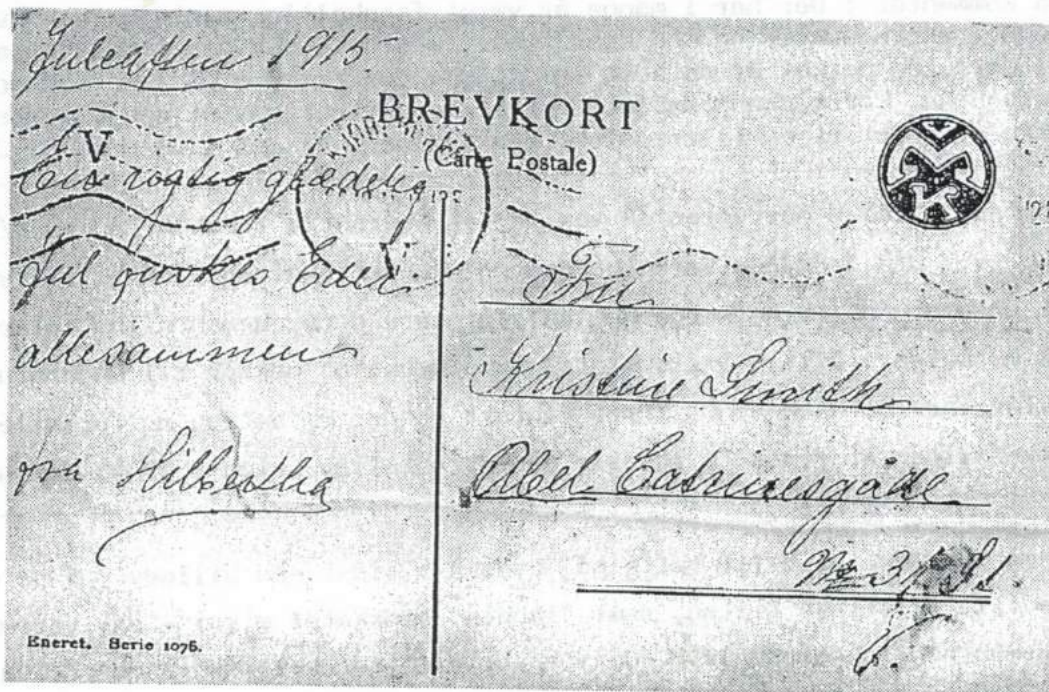 Juleaften 1915.
BREVKORT
(Carte Postale)
V
En rigtig glædelig
Jul ønskes Eder
allesammen
fra Hilbertha
Fru
Kristine Smith
Abel Catrinesgade
No 3
Eneret. Serie 1076.